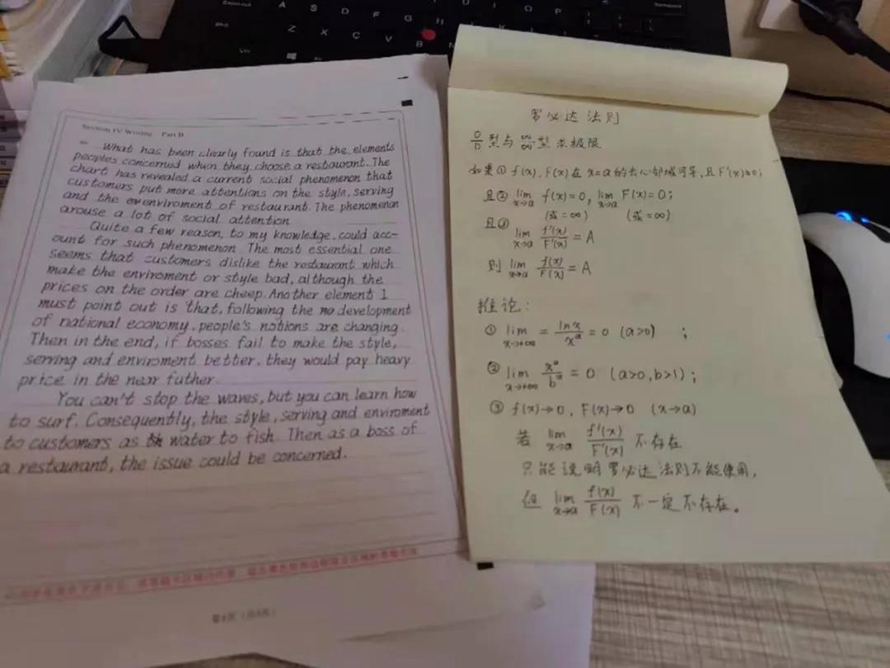 Section IV Writing Part B
What has been clearly found is that the elements
peoples concerned when they choose a restaurant. The
chart has revealed a current social phenomenon that
customers put more attentions on the style, serving
and the evenviroment of restaurant. The phenomenon
arouse a lot of social attention.
Quite a few reason, to my knowledge, could acc-
ount for such phenomenon. The most essential one
seems that customers dislike the restaurant which
make the enviroment or style bad, although the
prices on the order are cheep. Another element I
must point out is that, following the development
of national economy, people's notions are changing.
Then in the end, if bosses fail to make the style,
serving and enviroment better, they would pay heavy
price in the near futher.
You can't stop the waves, but you can learn how
to surf. Consequently, the style, serving and enviroment
to customers as water to fish. Then as a boss of
a restaurant, the issue could be concerned.
罗必达法则
0/0型与∞/∞型求极限
如果① f(x), F(x)在x=a的去心邻域可导,且F'(x)≠0;
且② lim x→a f(x)=0, lim x→a F(x)=0;
(或=∞) (或=∞)
且③ lim x→a f'(x)/F'(x) = A
则 lim x→a f(x)/F(x) = A
推论:
① lim x→+∞ = lnx/x^a = 0 (a>0) ;
② lim x→+∞ x^a/b^x = 0 (a>0,b>1);
③ f(x)→0, F(x)→0 (x→a)
若 lim x→a f'(x)/F'(x) 不存在
只能说明罗必达法则不能使用,
但 lim x→a f(x)/F(x) 不一定不存在。